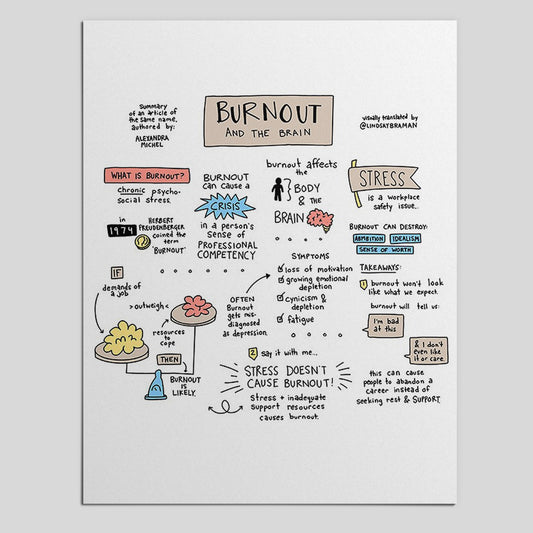 Summary
of an article of
the same name,
authored by:
ALEXANDRA
MICHEL
BURNOUT
AND THE BRAIN
visually translated by
@LINDSAYBRAMAN
WHAT IS BURNOUT?
chronic psycho-
social stress.
in
1974
HERBERT
FREUDENBERGER
coined the
term
"BURNOUT"
BURNOUT
can cause a
CRISIS
in a person's
sense of
PROFESSIONAL
COMPETENCY
burnout affects
the
BODY
& the
BRAIN
STRESS
is a workplace
safety issue.
BURNOUT CAN DESTROY:
AMBITION IDEALISM
SENSE OF WORTH
IF
demands of
a job
>outweigh<
resources
to cope
THEN
BURNOUT
IS
LIKELY.
OFTEN
Burnout
gets mis-
diagnosed
as depression.
SYMPTOMS
loss of motivation
growing emotional
depletion
cynicism &
depletion
fatigue
TAKEAWAYS:
1 burnout won't look
like what we expect.
burnout will tell us:
I'm bad
at this
& I don't
even like
it or care.
this can cause
people to abandon a
career instead of
seeking rest & SUPPORT.
2 say it with me...
STRESS DOESN'T
CAUSE BURNOUT!
Stress + inadequate
support resources
causes burnout.